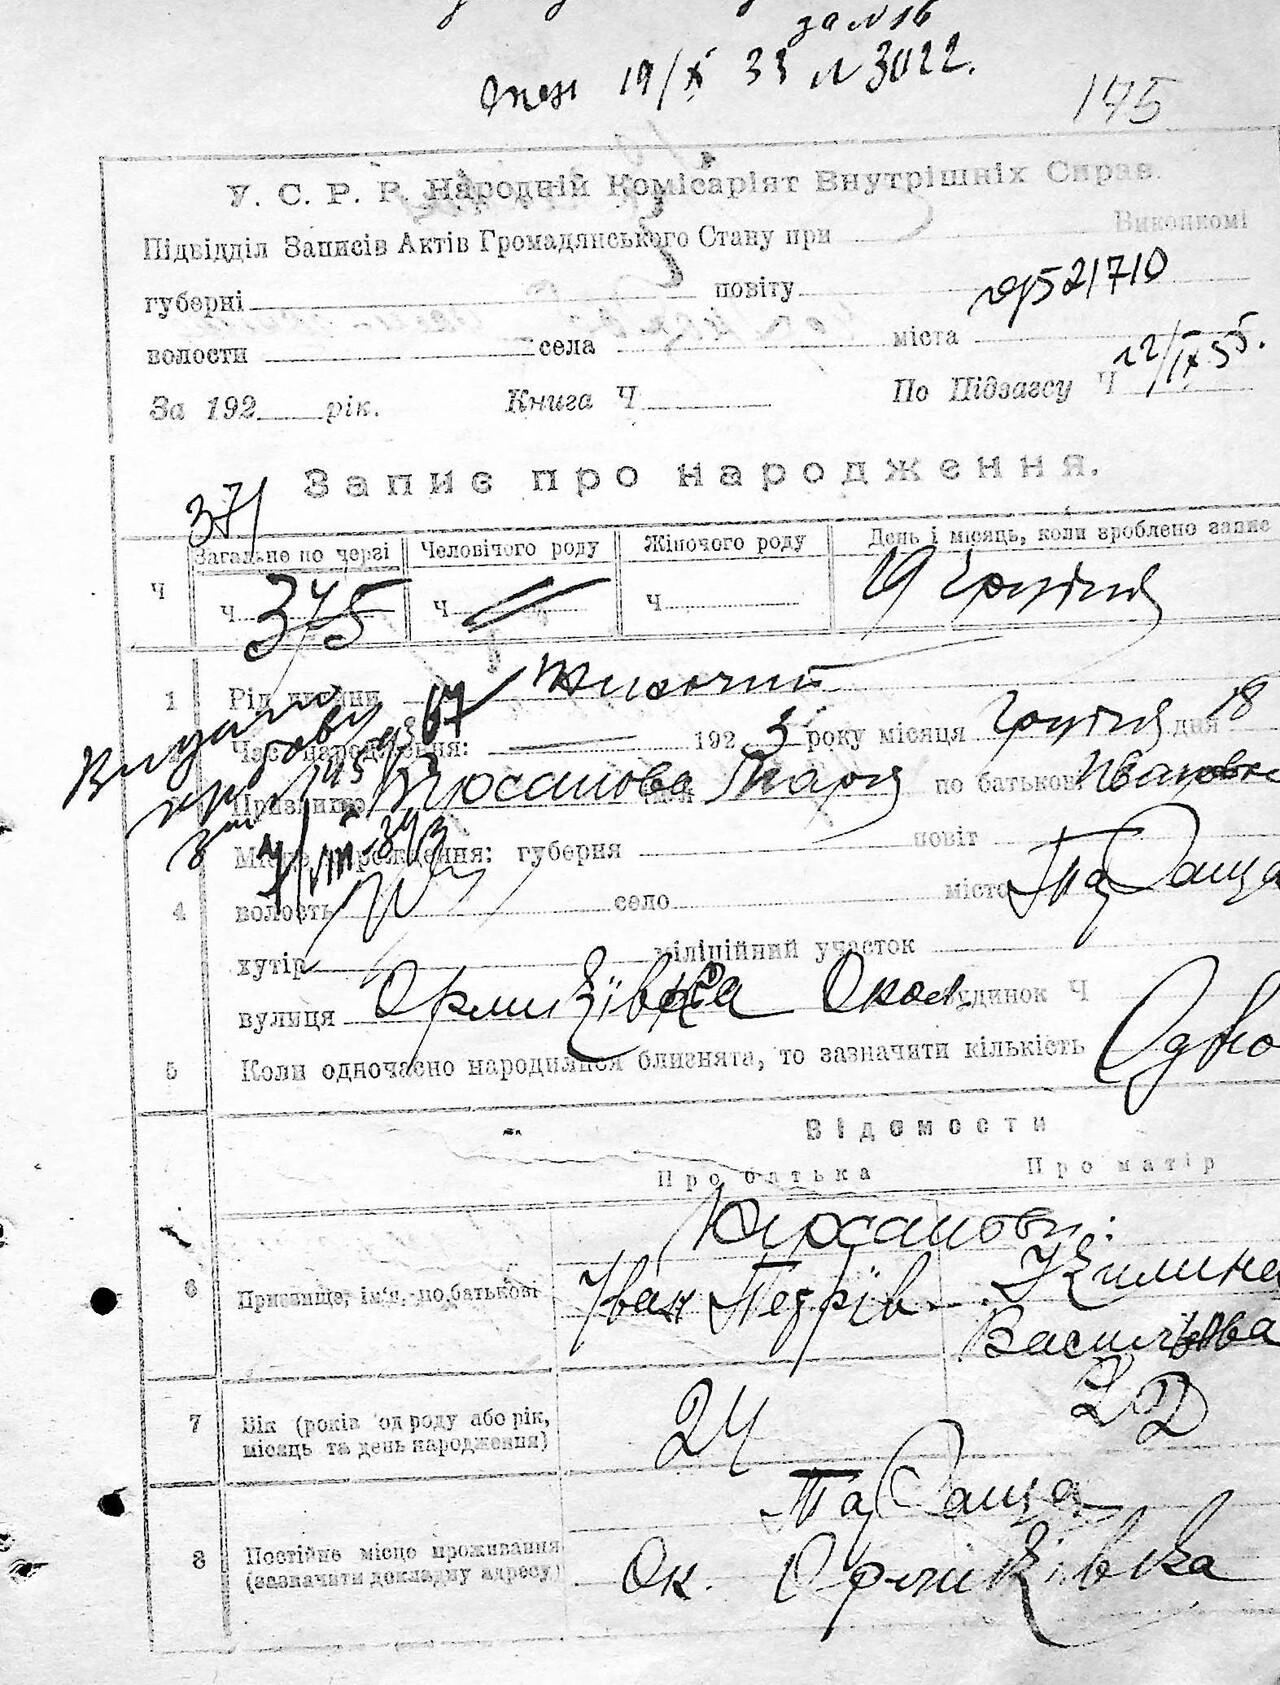 за № 16
19/X 33 № 3022.
175
У. С. Р. Р. Народній Комісаріят Внутрішніх Справ.
Підвідділ Записів Актів Громадянського Стану при Виконкомі
губерні повіту
521710
волости села міста
12/IX 55.
За 192 рік. Книга Ч По Підзагсу Ч
Запис про народження.
371
Загальне по черзі Человічого роду Жіночого роду День і місяць, коли зроблено запис
Ч Ч 375 Ч Ч 19 грудня
1 Рід дитини Жіночий
Час народження: 1923 року місяця грудня дня 18
Прізвище Марія по батькові Івановна
Місце народження: губерня повіт
4 волость село місто Тараща
хутір міліційний участок
вулиця Окол. будинок Ч
5 Коли одночасно народилися близнята, то зазначити кількість Одно
Відомости
Про батька Про матір
6 Призвище, ім'я, по батькові Іван Петрів Килина
Васильова
7 Вік (років од роду або рік, 24 22
місяць та день народження)
Тараща
8 Постійне місце проживання Ок.
(зазначити докладну адресу)